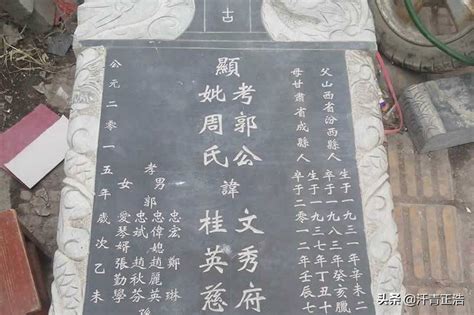 古
父山西省汾西縣人
生于一九三一年辛未二
卒于一九八三年癸亥臘
母甘肅省成縣人
生于一九三七年丁丑十
卒于二〇一二年壬辰七
顯考郭公諱文秀府
妣周氏桂英慈
孝男郭
忠宏 鄭琳
忠偉媳趙麗英
忠斌 趙秋芬
女 愛琴婿張勤學
公元二〇一五年歲次乙未
头条 @汗青正浩